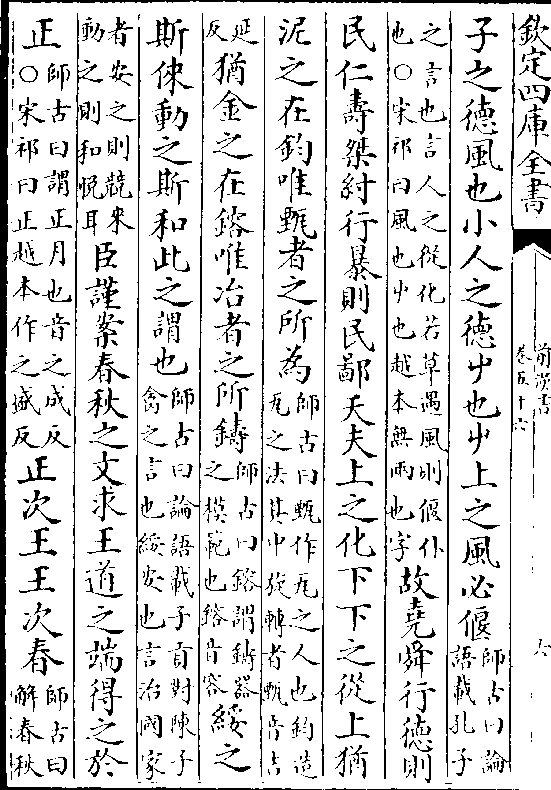 欽定四庫全書
前漢書
卷五十六
六
子之德風也小人之德屮也屮上之風必偃師古曰論語載孔子
之言也言人之從化若草遇風則偃仆也○宋祁曰風也屮也越本無兩也字故堯舜行德則
民仁壽桀紂行暴則民鄙夭夫上之化下下之從上猶
泥之在鈞唯甄者之所為師古曰甄作瓦之人也鈞造瓦之法其中旋轉者甄音吉
延反猶金之在鎔唯冶者之所鑄師古曰鎔謂鑄器之模範也鎔音容綏之
斯倈動之斯和此之謂也師古曰論語載子貢對陳子禽之言也綏安也言治國家
者安之則競來動之則和悅耳臣謹案春秋之文求王道之端得之於
正師古曰謂正月也音之成反○宋祁曰正越本作之盛反正次王王次春師古曰解春秋